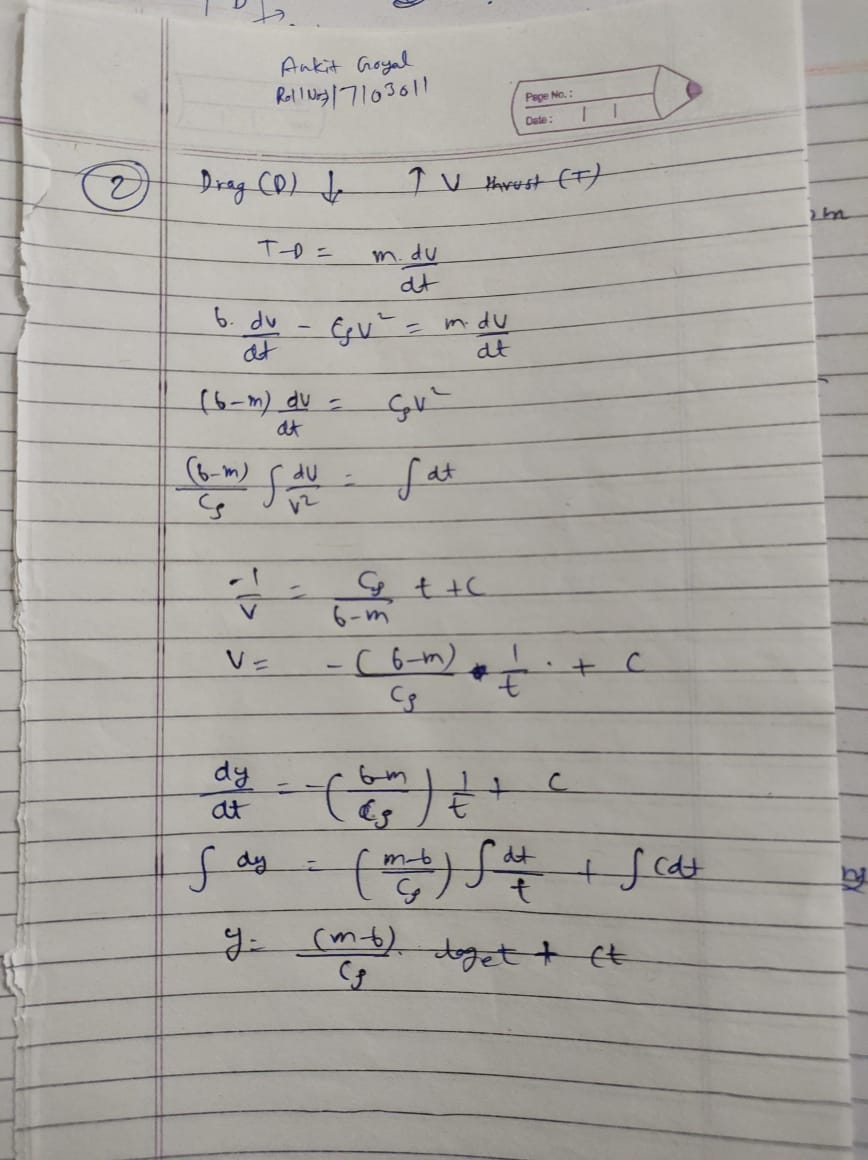 Ankit Goyal
Roll No 17103011
Page No. :
Date :
2 Drag (D) ↓ ↑ V thrust (T)
T-D = m. dv/dt
b. dv/dt - Cρv² = m. dv/dt
(b-m) dv/dt = Cρv²
(b-m)/Cρ ∫ dv/v² = ∫ dt
-1/v = Cρ/(b-m) t + C
V = -(b-m)/Cρ . 1/t . + C
dy/dt = -(b-m/Cρ) 1/t + C
∫ dy = (m-b/Cρ) ∫ dt/t + ∫ Cdt
y = (m-b)/Cρ . loget + Ct